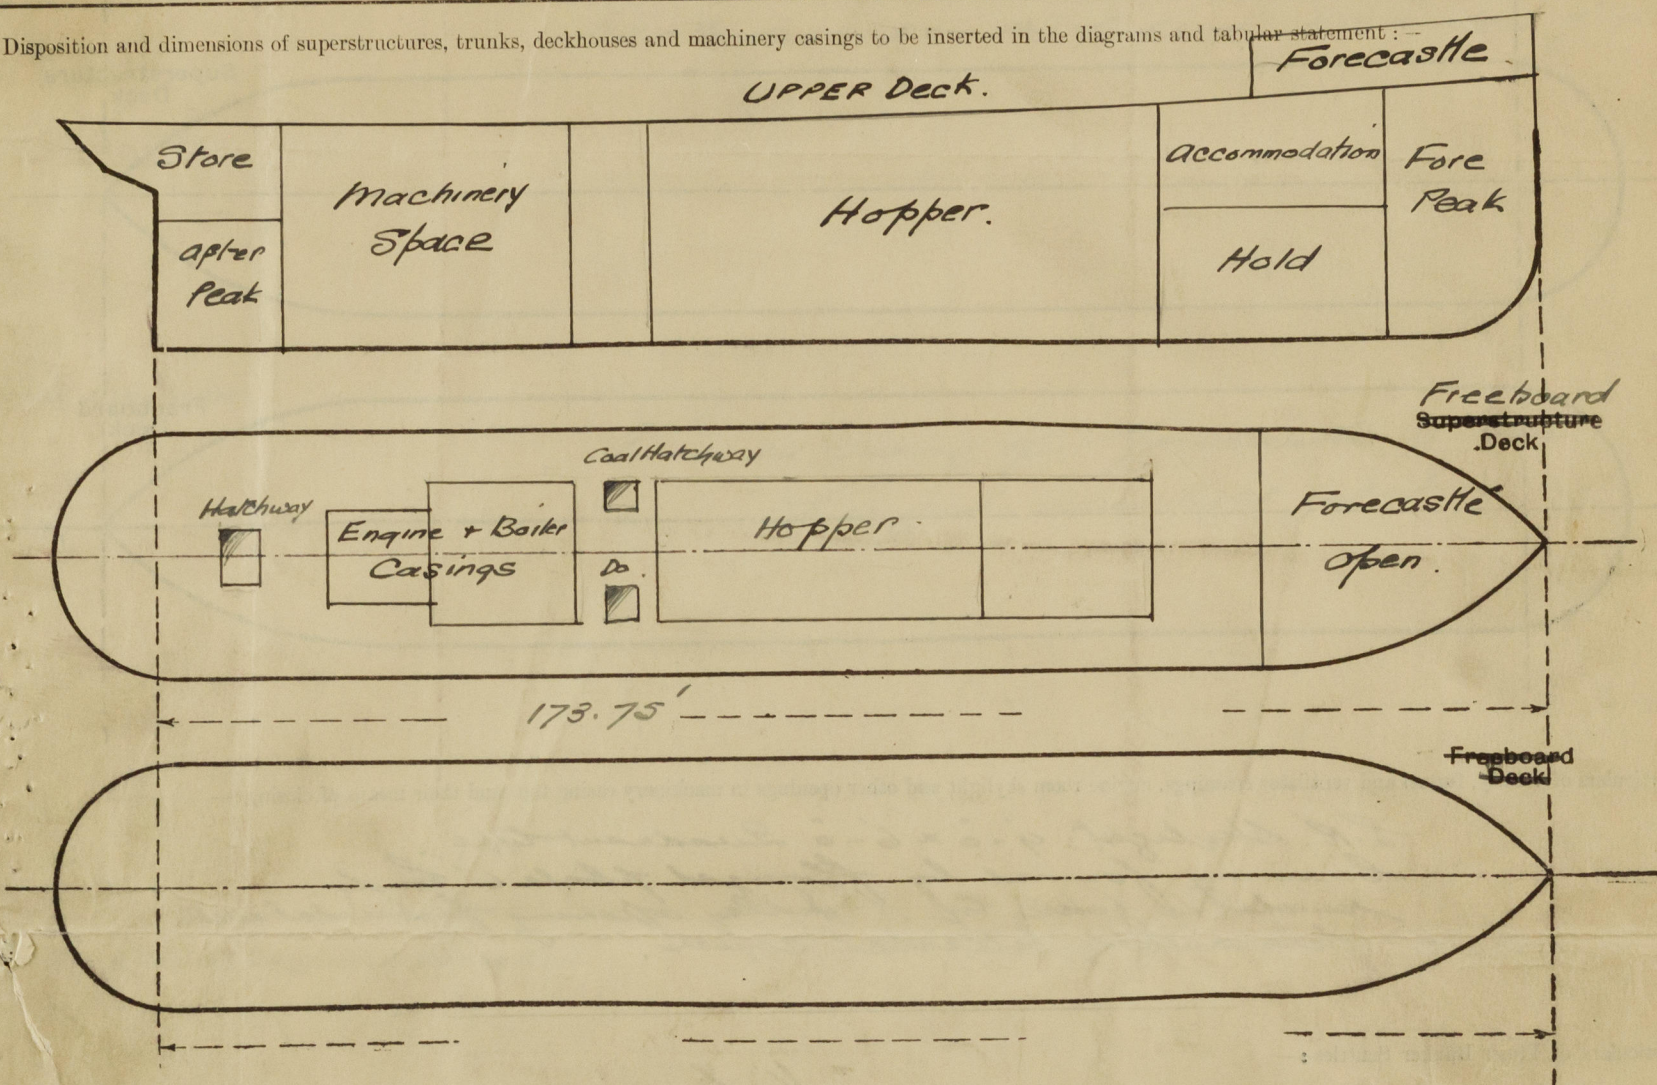 Disposition and dimensions of superstructures, trunks, deckhouses and machinery casings to be inserted in the diagrams and tabular statement :—
Forecastle
UPPER Deck.
Store
After
Peak
Machinery
Space
Hopper.
Accommodation
Hold
Fore
Peak
Freeboard
Superstructure
Deck
Coal Hatchway
Hatchway
Engine + Boiler
Casings
Do.
Hopper
Forecastle
open.
173.75'
Freeboard
Deck